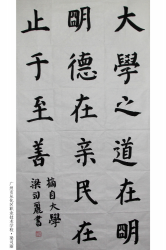 大學之道在明
明德在亲民在
止于至善
摘自大學